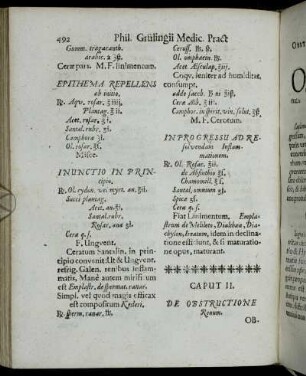 492 Phil. Grülingii Medic. Pract
Gumm. tragacanth.
arabic. a ʒß.
Ceræ pars. M. F. linimentum.
EPITHEMA REPELLENS
ab initio.
℞. Aqv. rosar. ℥iiij.
Plantag. ℥ii.
Acet. rosar. ℥i.
Santal. rubr. ʒi.
Camphora ℈i.
Ol. rosar. ℥i.
Misce.
INUNCTIO IN PRINcipio.
℞. Ol. cydon. vel myrt. an. ℥ii.
Succi plantag.
Acet. an. ℥i.
Santal. rubr.
Rosar. ana ʒi.
Cera q. s.
F. Ungvent.
Ceratum Santalin, in principio
convenit: Ut & Ungvent.
refrig. Galen. renibus testam-
matis. Mane autem mirifici usus
est Emplastr. de spermat. ranar.
Simpl. vel quod magis efficax
est compositum Kesleri.
℞. sperm. ranar. ℔.
Ceruss. ℔. ß.
Ol. omphacin. ℔.
Acet. Æsculap.
Coqv. leniter ad humiditat.
consumpt.
adde sacch. ♄ni ℥iß.
Cera Alb. ℥ii.
M. F. Cerotum.
IN PROGRESSU AD Resolvendam
Inflammationem.
℞. Ol. Rosar. ℥ii.
de Absinthio ℥i.
Chamomill. ℥i.
Santal. omnium
Spica
Cera q. s.
Fiat Linimentum. Emplastrum
de Meliloto, Diachylon,
idem in declinatione
est sunt, & si maturatione
opus, maturant.
CAPUT II.
DE OBSTRUCTIONE
Renum.
OB-